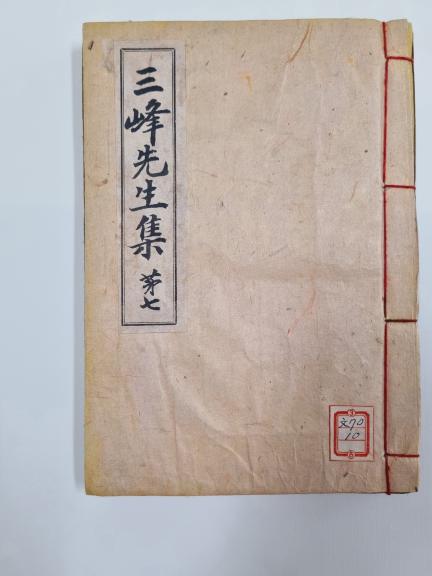 三峰先生集 第七
文70
10